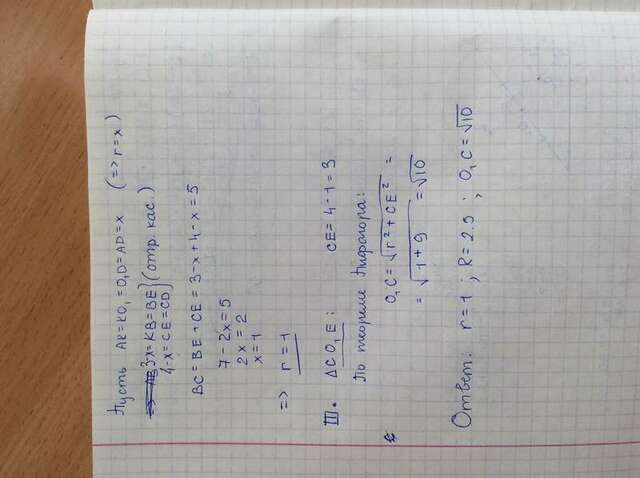 Пусть AK=KO₁=O₁D=AD=x (=> r=x)
3-x=KB=BE} (отр. кас.)
4-x=CE=CD
BC=BE+CE=3-x+4-x=5
7-2x=5
2x=2
x=1
=> r=1
III. ΔCO₁E: CE=4-1=3
По теореме Пифагора:
O₁C=√r²+CE² =
=√1+9 =√10
Ответ: r=1; R=2.5; O₁C=√10